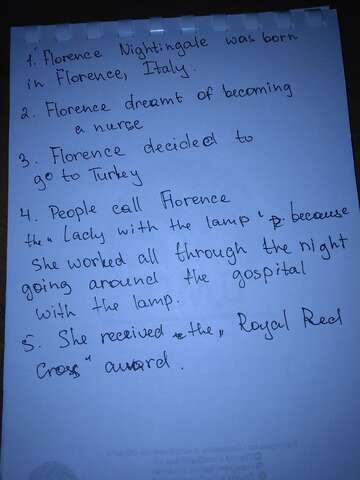 1. Florence Nightingale was born
in Florence, Italy.
2. Florence dreamt of becoming
a nurse
3. Florence decided to
go to Turkey
4. People call Florence
the "Lady with the lamp" because
she worked all through the night
going around the gospital
with the lamp.
5. She received the "Royal Red
Cross" award.